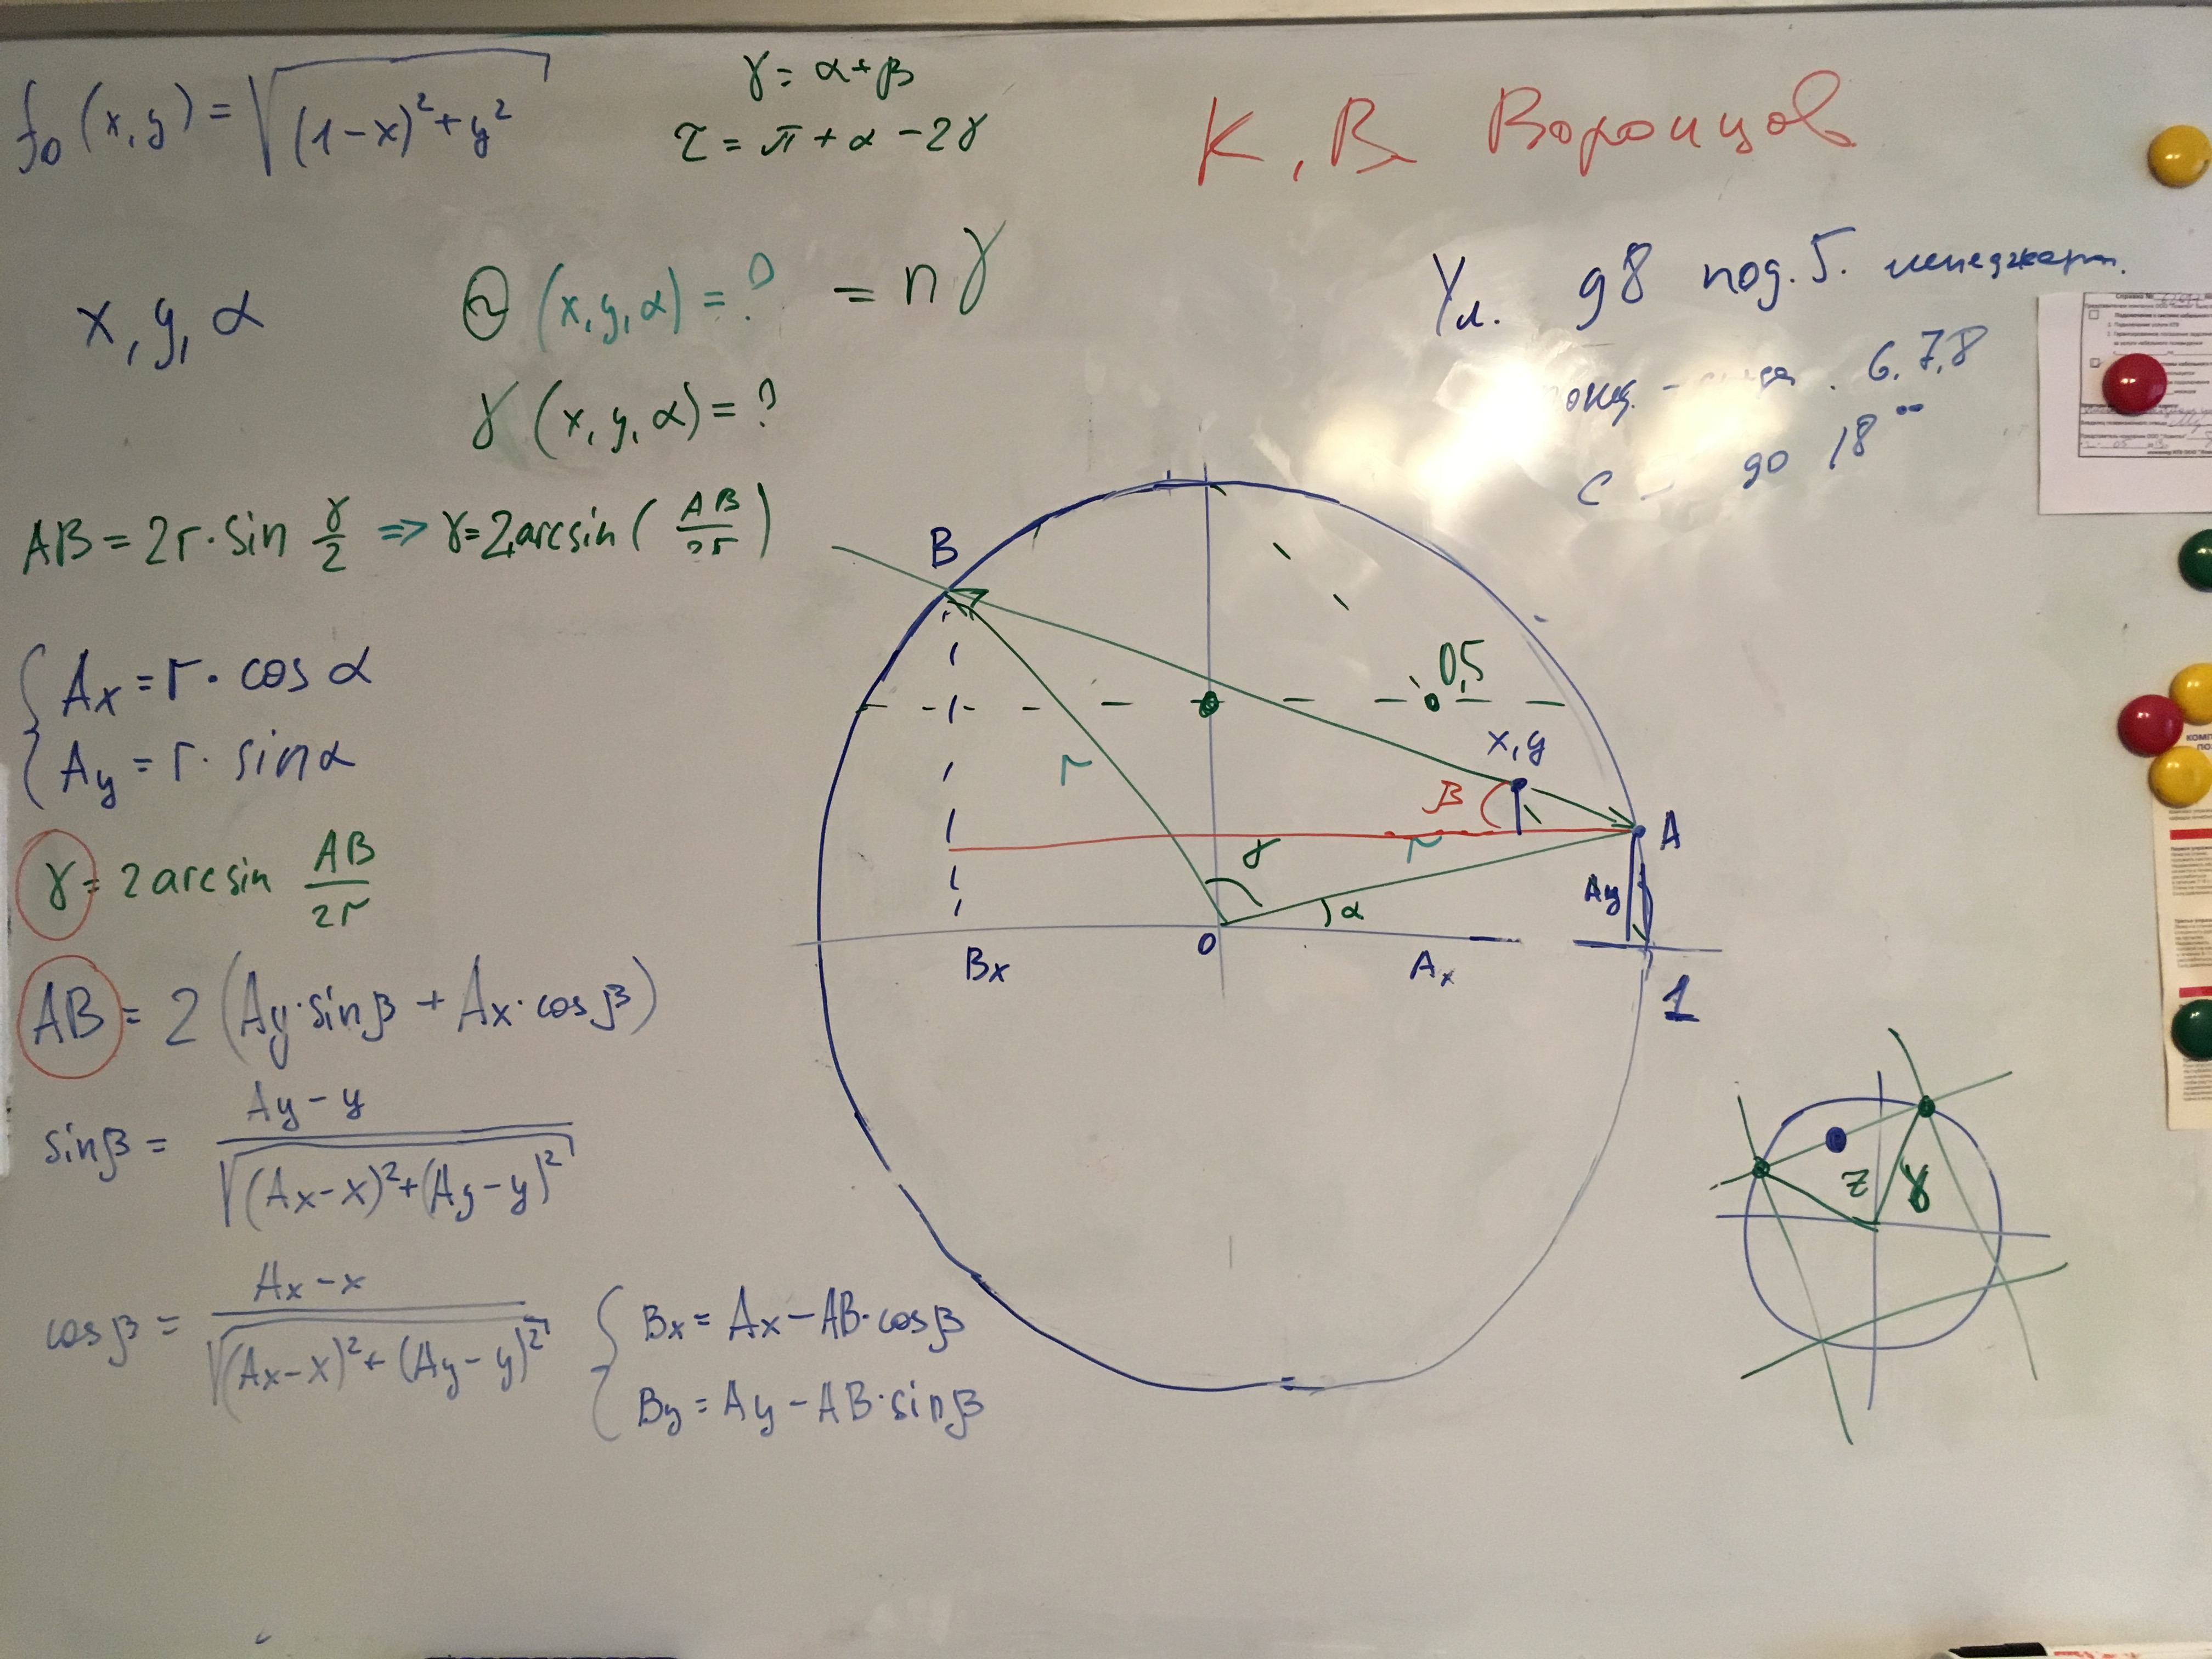 f₀(x,y) = √((1-x)²+y²)
γ = α+β
τ = π + α - 2γ
К.В Воронцов
x, y, α
Θ(x,y,α) = ? = nγ
γ(x,y,α) = ?
Ул. д8 под. 5. менеджерт.
6,7,8
с - до 18⁰⁰
AB = 2r·sin γ/2 => γ=2arcsin(AB/2r)
Ax = r·cos α
Ay = r·sin α
γ = 2 arcsin AB/2r
AB = 2(Ay·sinβ + Ax·cosβ)
sinβ = (Ay-y)/√((Ax-x)²+(Ay-y)²)
cosβ = (Ax-x)/√((Ax-x)²+(Ay-y)²)
Bx = Ax-AB·cosβ
By = Ay-AB·sinβ
B
0,5
x,y
r
β
A
γ
r
α
Ay
0
Bx
Ax
1
z
γ